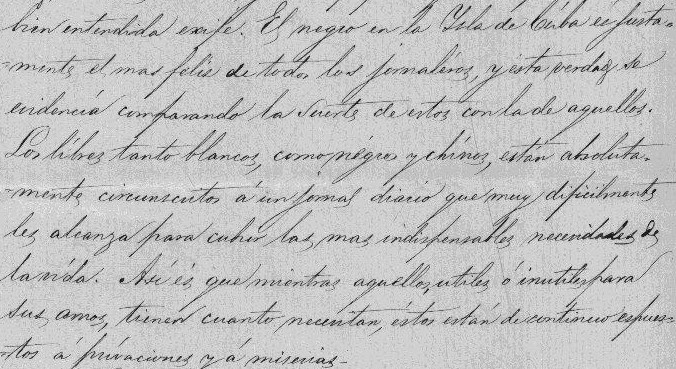 bien entendida exije. El negro en la Ysla de Cuba es justa=
=mente el mas felis de todos los jornaleros, y esta verdad se
evidencia comparando la suerte de estos con la de aquellos.
Los libres tanto blancos, como négros y chinos, están absoluta=
=mente circunscritos á un jornal diario que muy dificilmente
les alcanza para cubrir las mas indispensables necesidades de
la vida. Asi es que mientras aquellos, utiles ó inutiles para
sus amos, tienen cuanto necesitan, éstos están de continuo espues=
=tos á privaciones y á miserias.